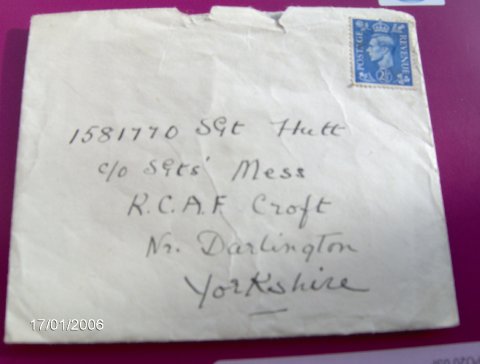 POSTAGE
REVENUE
2½
1581770 Sgt Hutt
c/o Sgts' Mess
R.C.A.F. Croft
Nr. Darlington
Yorkshire
17/01/2006